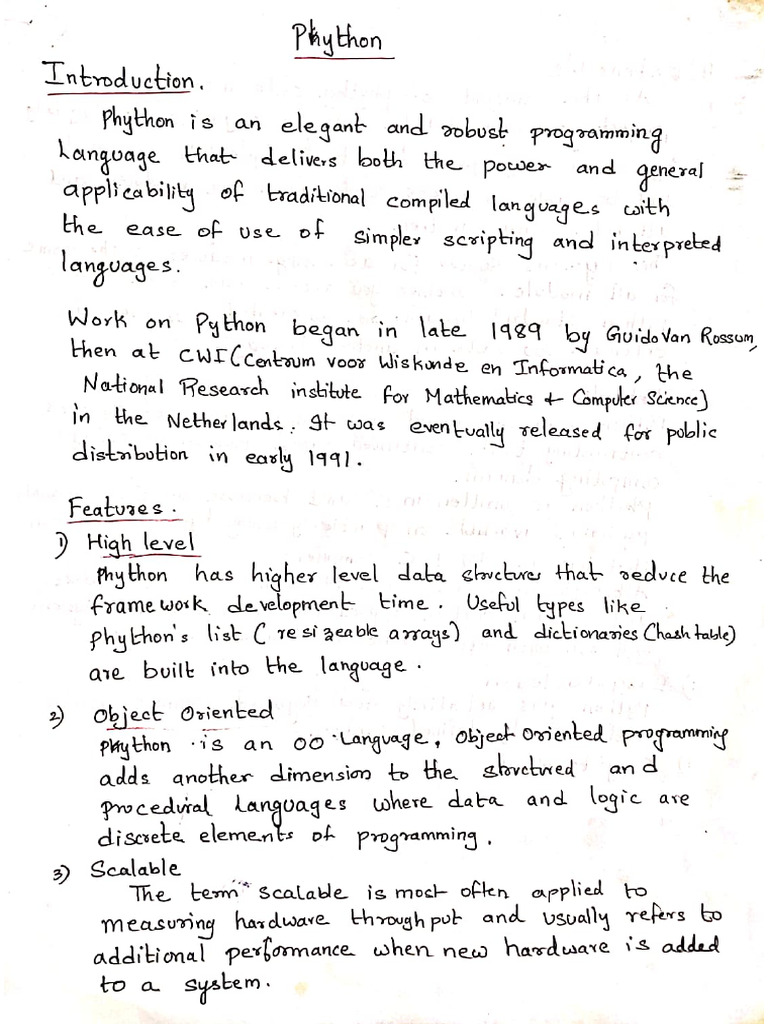 Phython
Introduction.
Phython is an elegant and robust programming
Language that delivers both the power and general
applicability of traditional compiled languages with
the ease of use of simpler scripting and interpreted
languages.
Work on Python began in late 1989 by Guido Van Rossum,
then at CWI (Centrum voor Wiskunde en Informatica, the
National Research institute for Mathematics + Computer Science)
in the Netherlands. It was eventually released for public
distribution in early 1991.
Features.
1) High level
Phython has higher level data structures that reduce the
framework development time. Useful types like
Phython's list (resizeable arrays) and dictionaries (hash table)
are built into the language.
2) Object Oriented
Phython is an OO Language, Object Oriented programming
adds another dimension to the structured and
procedural Languages where data and logic are
discrete elements of programming.
3) Scalable
The term scalable is most often applied to
measuring hardware throughput and usually refers to
additional performance when new hardware is added
to a system.